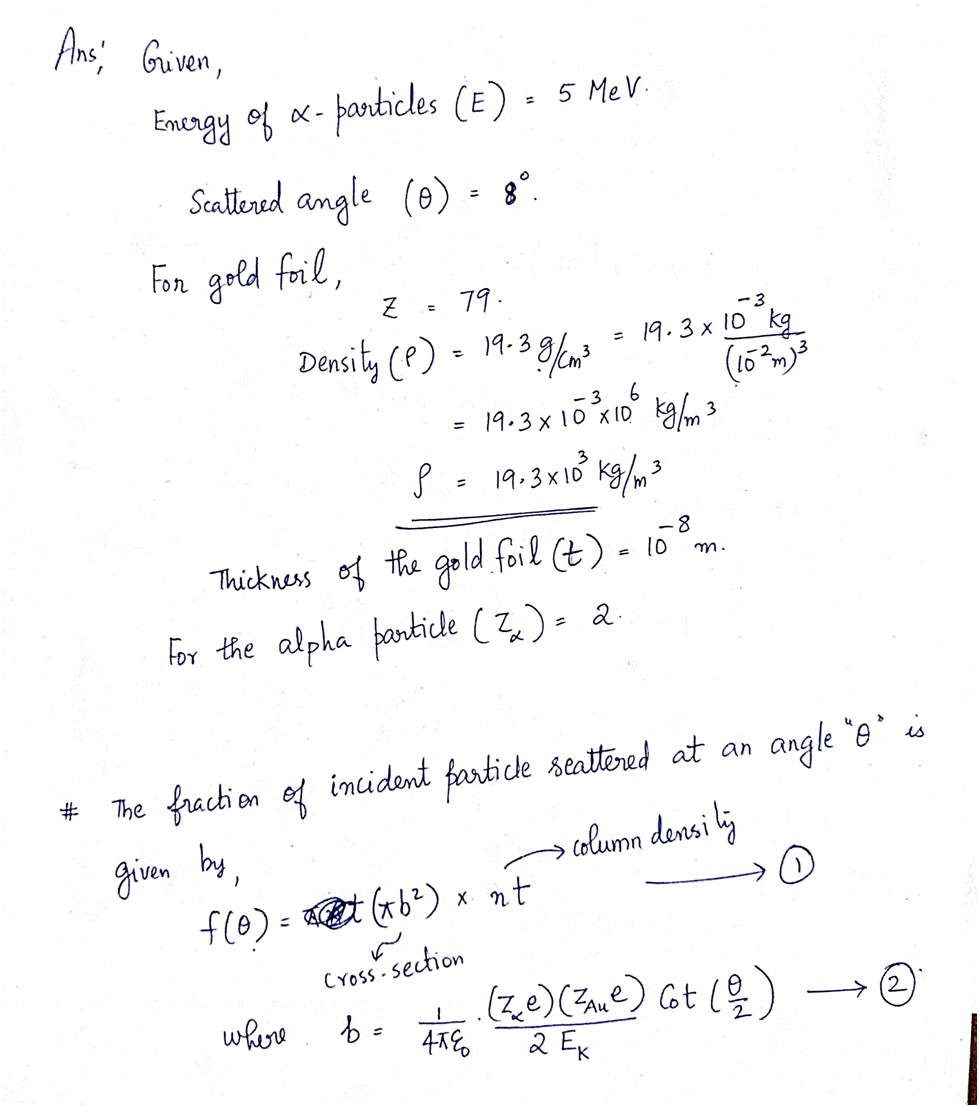 Ans; Given,
Energy of α-particles (E) = 5 MeV.
Scattered angle (θ) = 8°.
For gold foil,
Z = 79.
Density (ρ) = 19.3 g/cm³ = 19.3 × 10⁻³ kg / (10⁻² m)³
= 19.3 × 10⁻³ × 10⁶ kg/m³
ρ = 19.3 × 10³ kg/m³
Thickness of the gold foil (t) = 10⁻⁸ m.
For the alpha particle (Z_α) = 2.
# The fraction of incident particle scattered at an angle "θ" is
given by,
→ column density
f(θ) = (πb²) × nt → ①
cross-section
where b = 1/4πε₀ · (Z_α e)(Z_Au e) / 2 E_K Cot (θ/2) → ②